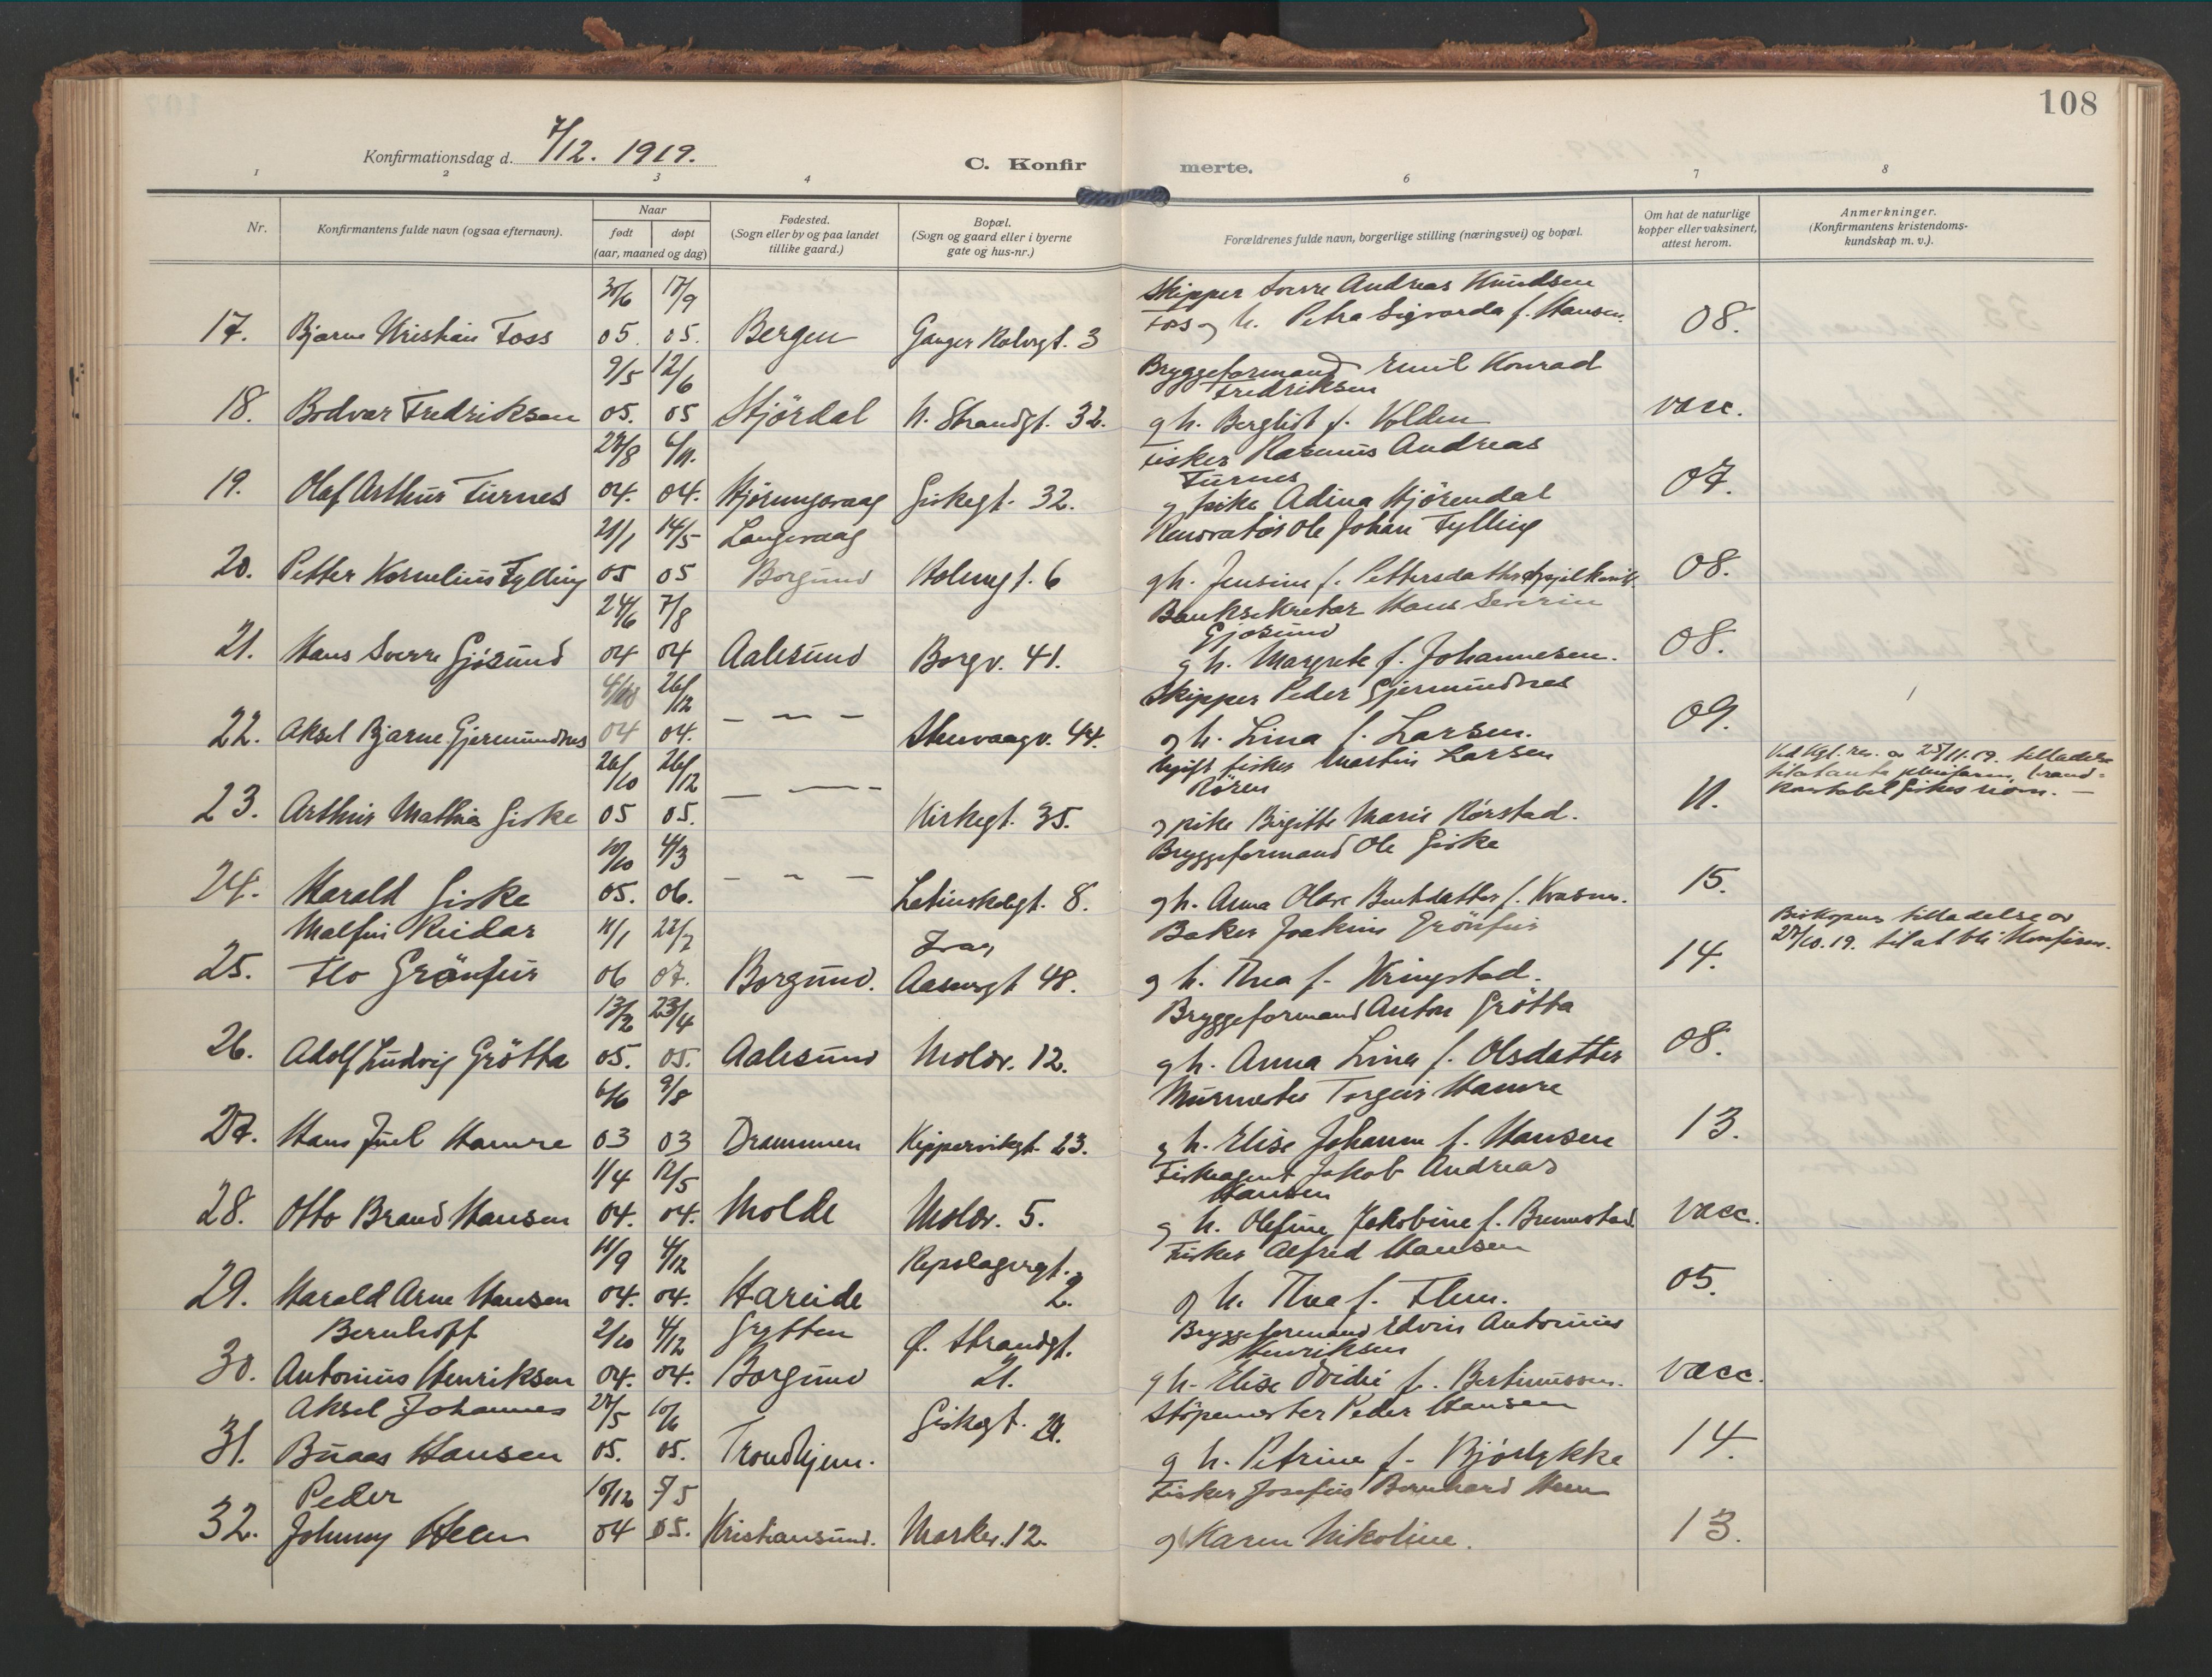 108
Konfirmationsdag d. 7/12. 1919.
C. Konfir merte.
1 2 3 4 6 7 8
Nr. Konfirmantens fulde navn (ogsaa efternavn). Naar født døpt (aar, maaned og dag)
Fødested. (Sogn eller by og paa landet tillike gaard.)
Bopæl. (Sogn og gaard eller i byerne gate og hus-nr.)
Forældrenes fulde navn, borgerlige stilling (næringsvei) og bopæl.
Om hat de naturlige kopper eller vaksinert, attest herom.
Anmerkninger. (Konfirmantens kristendoms-kundskap m. v.).
30/6 17/9 Skipper Sverre Andreas Knudsen
17. Bjarne Kristian Foss 05. 05. Bergen Ganger Rolvsgt. 3 Foss og h. Petra Sigvarda f. Hansen. 08.
9/5 12/6 Bryggeformand Emil Konrad
Fredriksen
18. Bodvar Fredriksen 05. 05 Stjørdal N. Strandgt. 32. og h. Bergliot f. Volden vacc.
27/8 6/11. Fisker Rasmus Andreas
Furnes
19. Olaf Arthur Furnes 04. 04. Hjørungavaag Giskegt. 32. og pike Adina Hjørendal 07.
21/1 14/5 Langevaag Ole Johan Fylling
20. Petter Kornelius Fylling 05 05 Borgund Holmgt. 6 og h. Jensine f. Pettersdatter 08.
24/6 7/8 Banksekretær Hans Severin
Gjøsund
21. Hans Sverre Gjøsund 04 04 Aalesund Borgv. 41. og h. Margrete f. Johannesen. 08.
4/10 26/12 Skipper Peder Gjermundnes
22. Aksel Bjarne Gjermundnes 04 04. — — — Stuevaagv. 44. og h. Lina f. Larsen. 09.
26/10 26/12 Ugift fisker Martin Larsen
Røren
Ved kgl. res. av 25/11.19. tilladelse
til at anta
konstabel Giskes navn. —
23. Arthur Mathias Giske 05 05. — — — Kirkegt. 35. og pike Birgitte Marie Rørstad. 11.
10/10 4/3 Bryggeformand Ole Giske
24. Harald Giske 05. 06. — — — Latinskolegt. 8. og h. Anna Olave Bentdatter f. 15.
Malfin Reidar 11/1 22/7 Baker Joakim Grönfur
Biskopens tilladelse av
27/10.19. til at bli konfirm.
25. Flo Grönfur 06 07. Borgund. 48. og h. Thea f. Kringstad. 14.
13/2 23/4 Bryggeformand Anton Grötta
26. Adolf Ludvig Grötta 05. 05. Aalesund Molov. 12. og h. Anna Lina f. Olsdatter 08.
6/6 9/8 Murmester Torgeir Hamre
27. Hans Juel Hamre 03 03 Drammen Kippervikgt. 23. og h. Elise Johanne f. Hansen 13.
1/4 12/5 Fiskeagent Jakob Andreas
Hansen
28. Otto Brand Hansen 04. 04. Molde Molov. 5. og h. Olefine Jakobine f. Brunstad. vacc.
11/9 4/12 Repslagergt. Fisker Alfred Hansen
29. Harald Arne Hansen 04. 04. Hareide 2. og h. Thea f. Flem. 05.
Bernhoff 2/10 4/12 Grytten Ø. Strandgt. Bryggeformand Edvin Antonius
Henriksen
30. Antonius Henriksen 04. 04. Borgund 21. og h. Elise Ovidie f. Bertinussen. vacc.
Aksel Johannes 27/5 10/6 Giskegt. 21. Støpemester Peder Hansen
31. Buaas Hansen 05. 05. Trondhjem. og h. Petrine f. Bjørlykke 14.
Peder 10/12 7/5 Fisker Josefus Bernhard Heen
32. Johnny Heen 04 05. Kristiansund. Maskev. 12. og Karen Nikoline. 13.